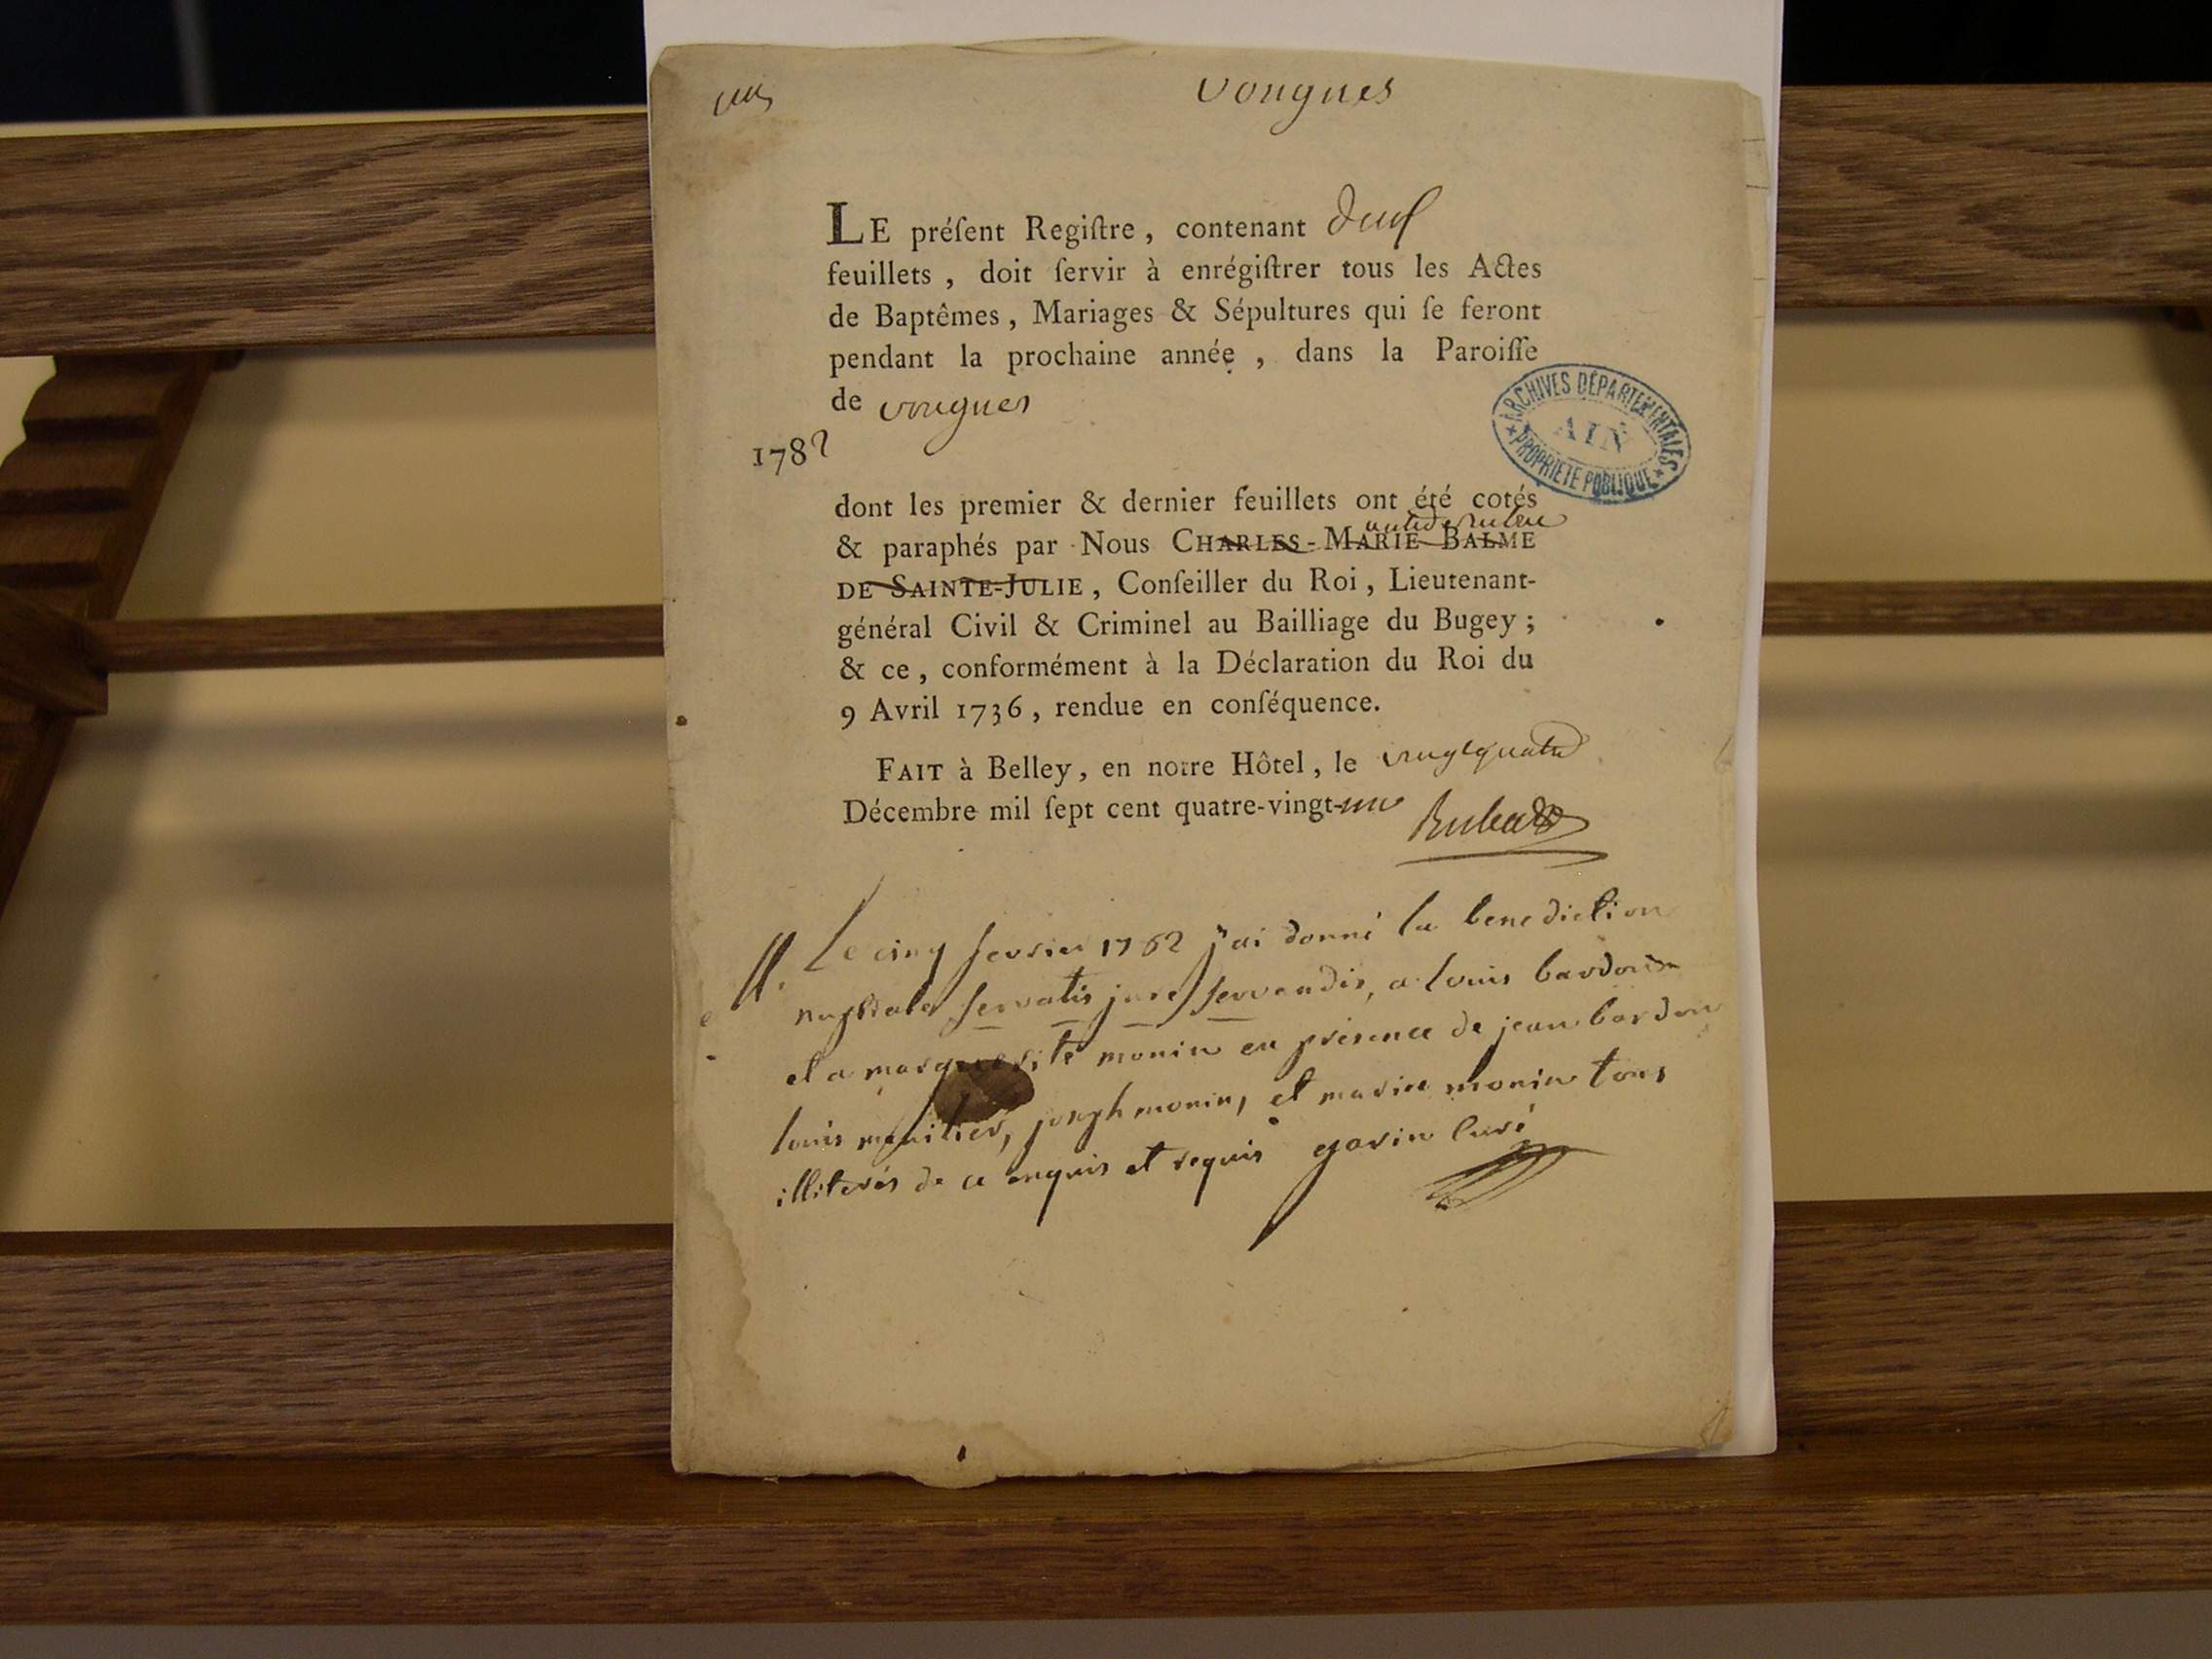 un
vongnes
LE préſent Regiſtre, contenant deux
feuillets, doit ſervir à enrégiſtrer tous les Actes
de Baptêmes, Mariages & Sépultures qui ſe feront
pendant la prochaine année, dans la Paroiſſe
de vongnes
1782
ARCHIVES DÉPARTEMENTALES
AIN
PROPRIETE PUBLIQUE
dont les premier & dernier feuillets ont été cotés
& paraphés par Nous CHARLES-MARIE BALME
DE SAINTE-JULIE, Conſeiller du Roi, Lieutenant-
général Civil & Criminel au Bailliage du Bugey;
& ce, conformément à la Déclaration du Roi du
9 Avril 1736, rendue en conſéquence.
FAIT à Belley, en notre Hôtel, le vingtquatre
Décembre mil ſept cent quatre-vingt-un
Le cinq fevrier 1782 j'ai donné la benediction
nuptiale servatis jure servandis, a louis bardon
et a marguerite monin en présence de jean bardon
louis joseph monin, et marie monin tous
illiterés de ce enquis et requis gavin curé